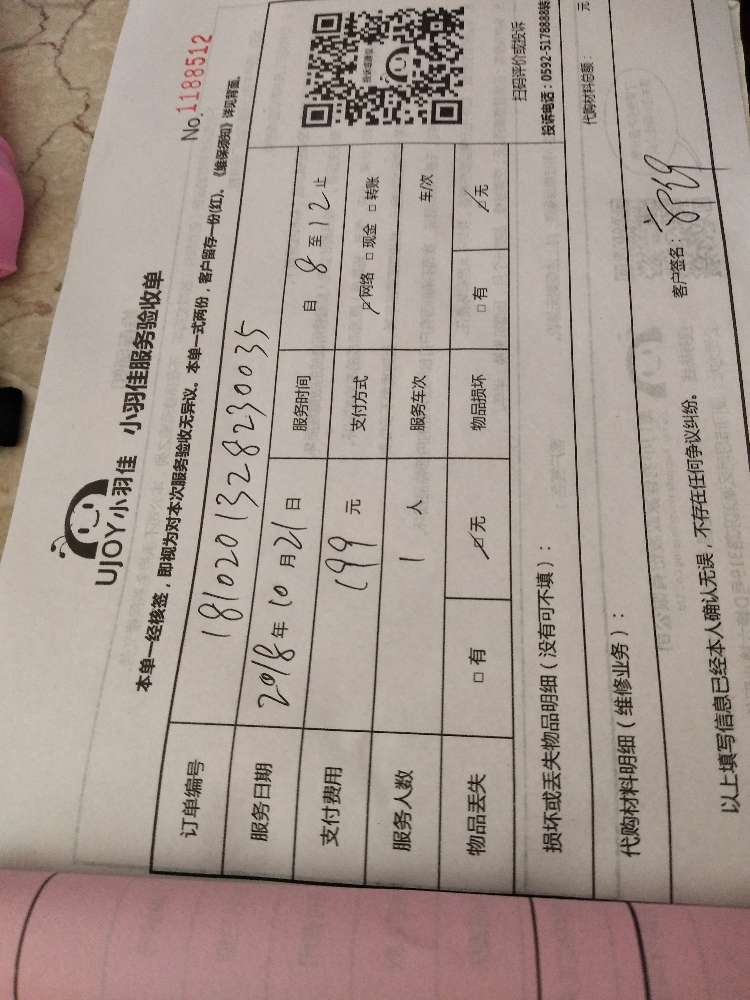 UJOY小羽佳 小羽佳服务验收单
No.1188512
本单一经核签，即视为对本次服务验收无异议。本单一式两份，客户留存一份(红)。《维保须知》详见背面。
订单编号 1810201328230035
服务日期 2018年10月21日 服务时间 自8至12止
支付费用 199元 支付方式 ☑网络 □现金 □转账
服务人数 1人 服务车次 车/次
物品丢失 □有 ☑无 物品损坏 □有 ☑无
投诉或建议
扫码评价或投诉
投诉电话：0592-5178888转
损坏或丢失物品明细（没有可不填）：
代购材料明细（维修业务）：
代购材料总额： 元
以上填写信息已经本人确认无误，不存在任何争议纠纷。
客户签名：